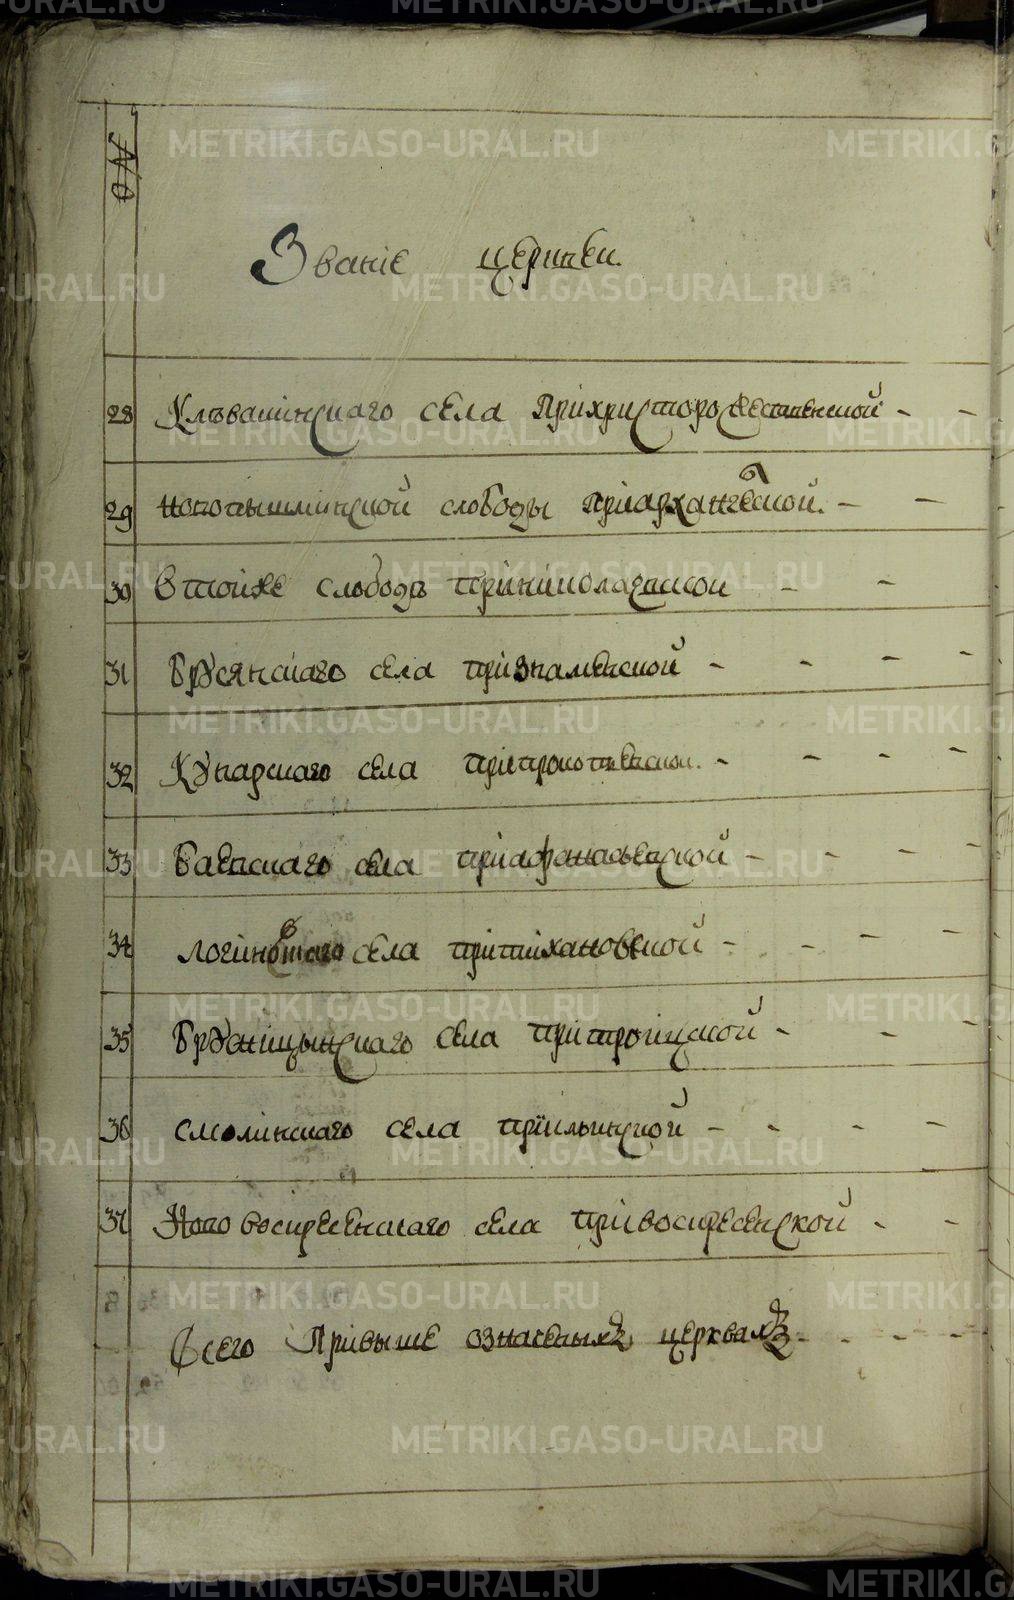 №
Званїе церькви.
28 Клѣвакинскаго села Прихристорождественской - -
29 новопышминской слободы приархангелской. - -
30 Втойже слободѣ приниколаевской - -
31 Брусянскаго села призnаменской - - - -
32 Кунарскаго села припрокопьевской. - - - -
33 Баевскаго села приафанасьевской - - - -
34 логиновскаго села притихановской - - - -
35 Брусницынскаго села притроицкой - - -
36 смолинскаго села приильинской - - - -
37 Нововоскресенскаго села привоскресенской - -
Всего Привыше означеныхъ церквахъ - - - -
METRIKI.GASO-URAL.RU